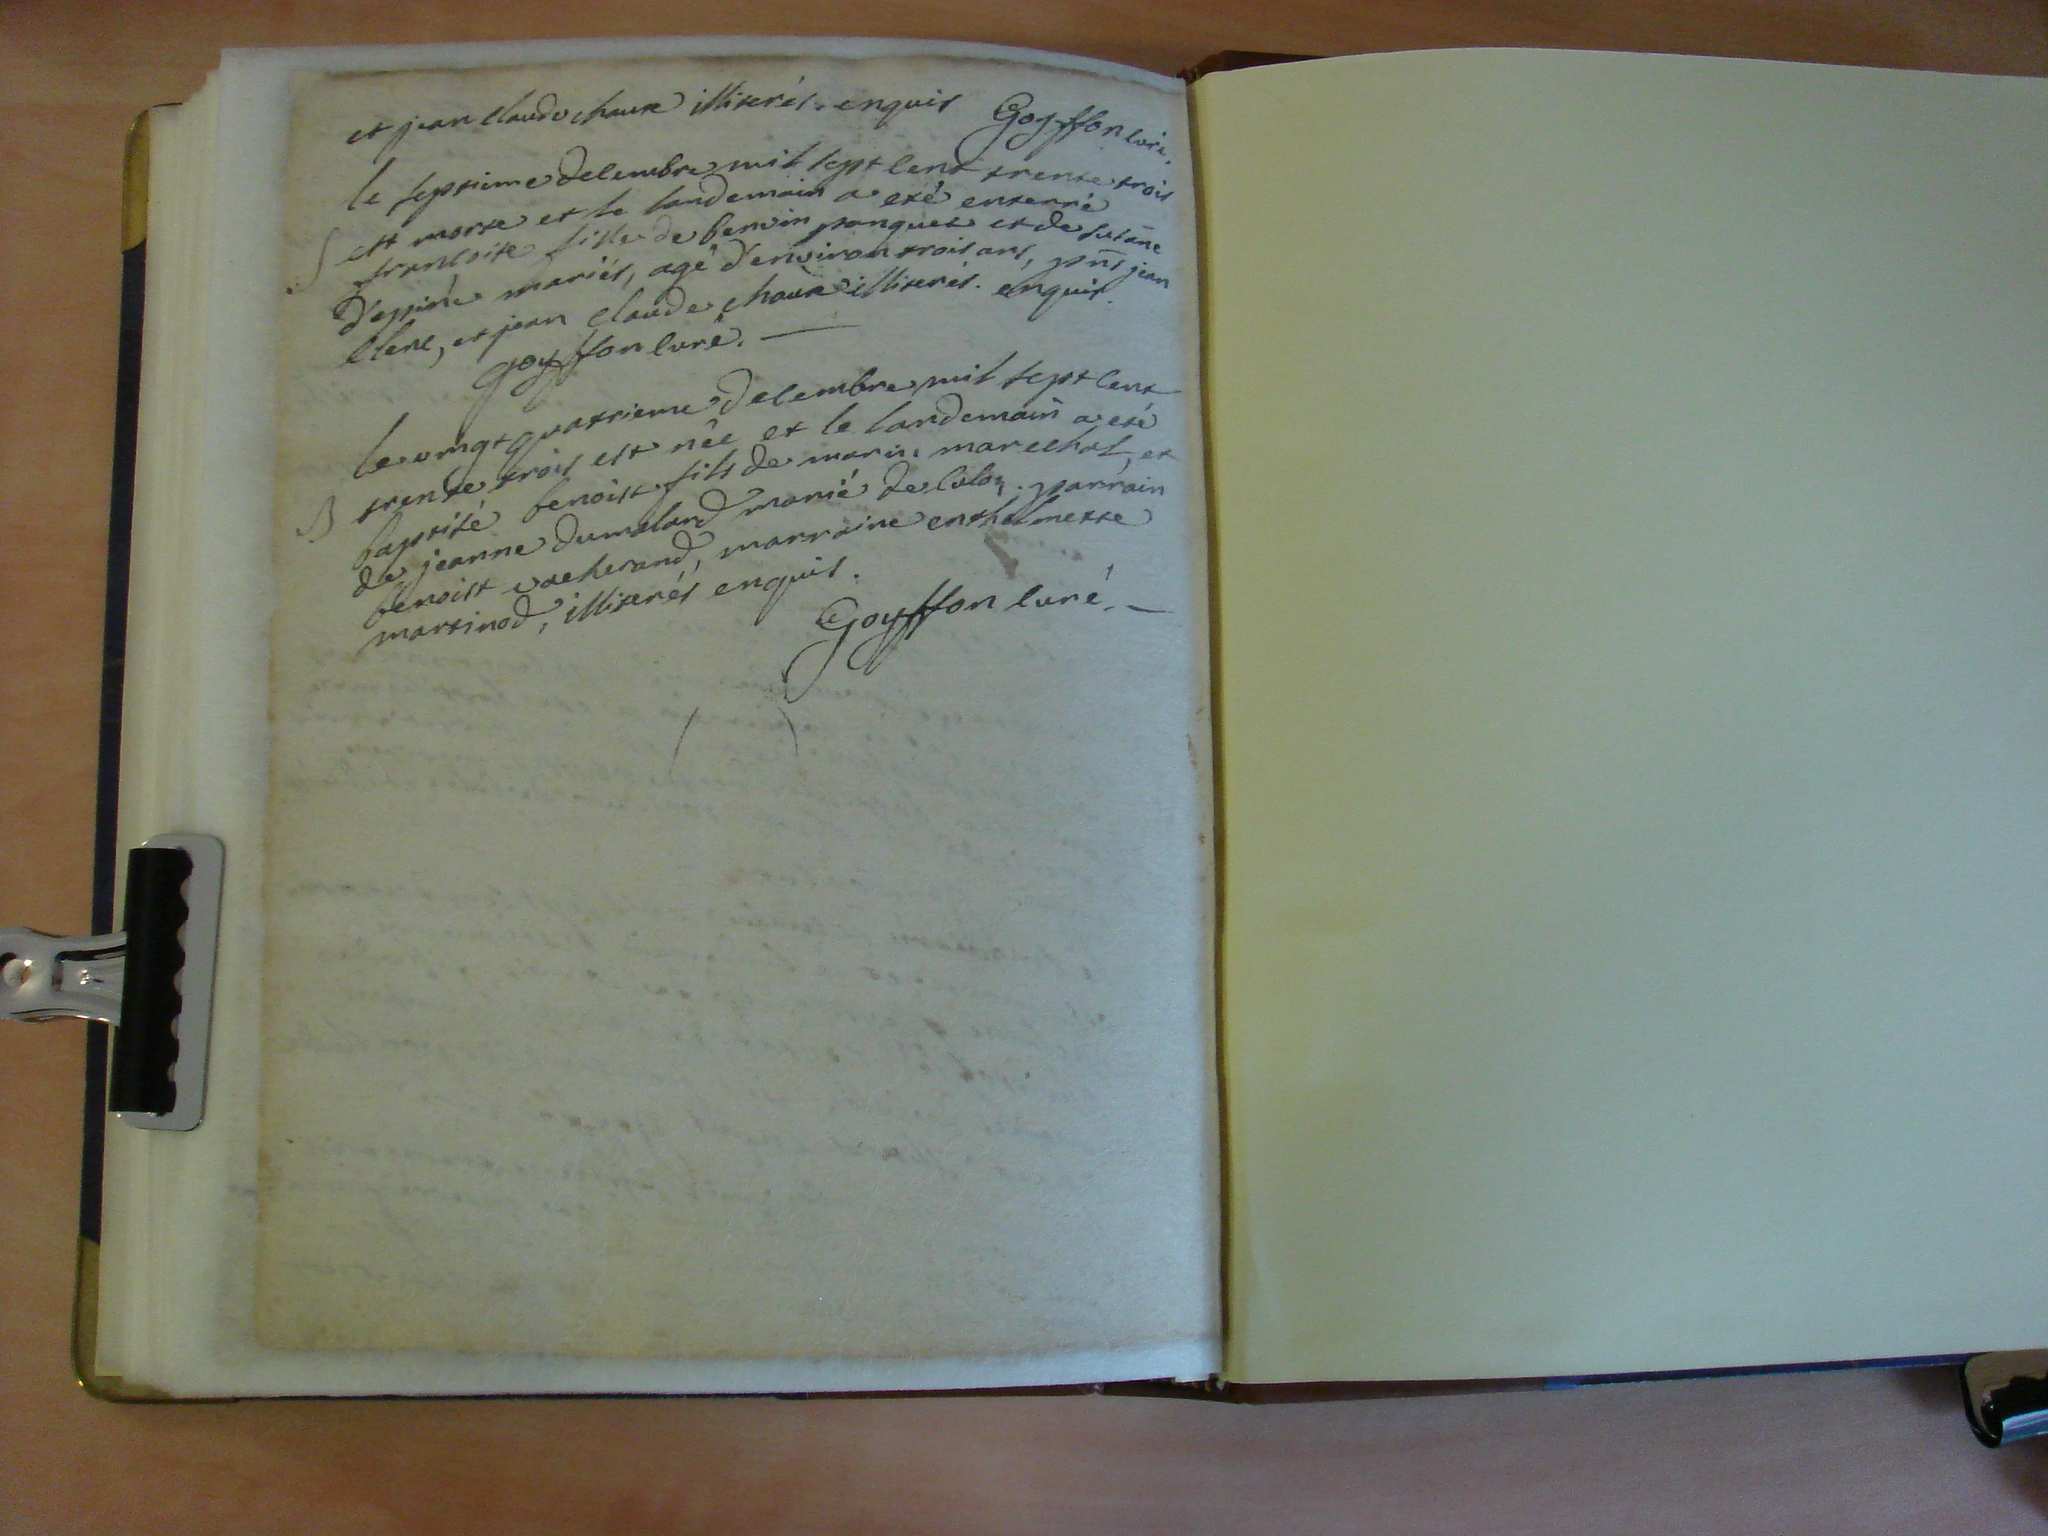 et jean Claude chaux illiterés. enquis Goyffon curé.
le septieme decembre mil sept cent trente trois
S est morte et le landemain a eté enterré
francoise fille de benoin panquet et de susāne
d'eppine mariés, agé d'environ trois ans, pn̄s jean
Clerc, et jean Claude chaux illiterés. enquis.
Goyffon curé.
le vingt quatrieme decembre mil sept cent
trente trois est née et le landemain a eté
B baptisé benoist fils de marin marechal, et
de jeanne dumolard marié de Colon. parrain
benoist vacherand, marraine enthelmette
martinod, illiterés enquis.
Goyffon curé.